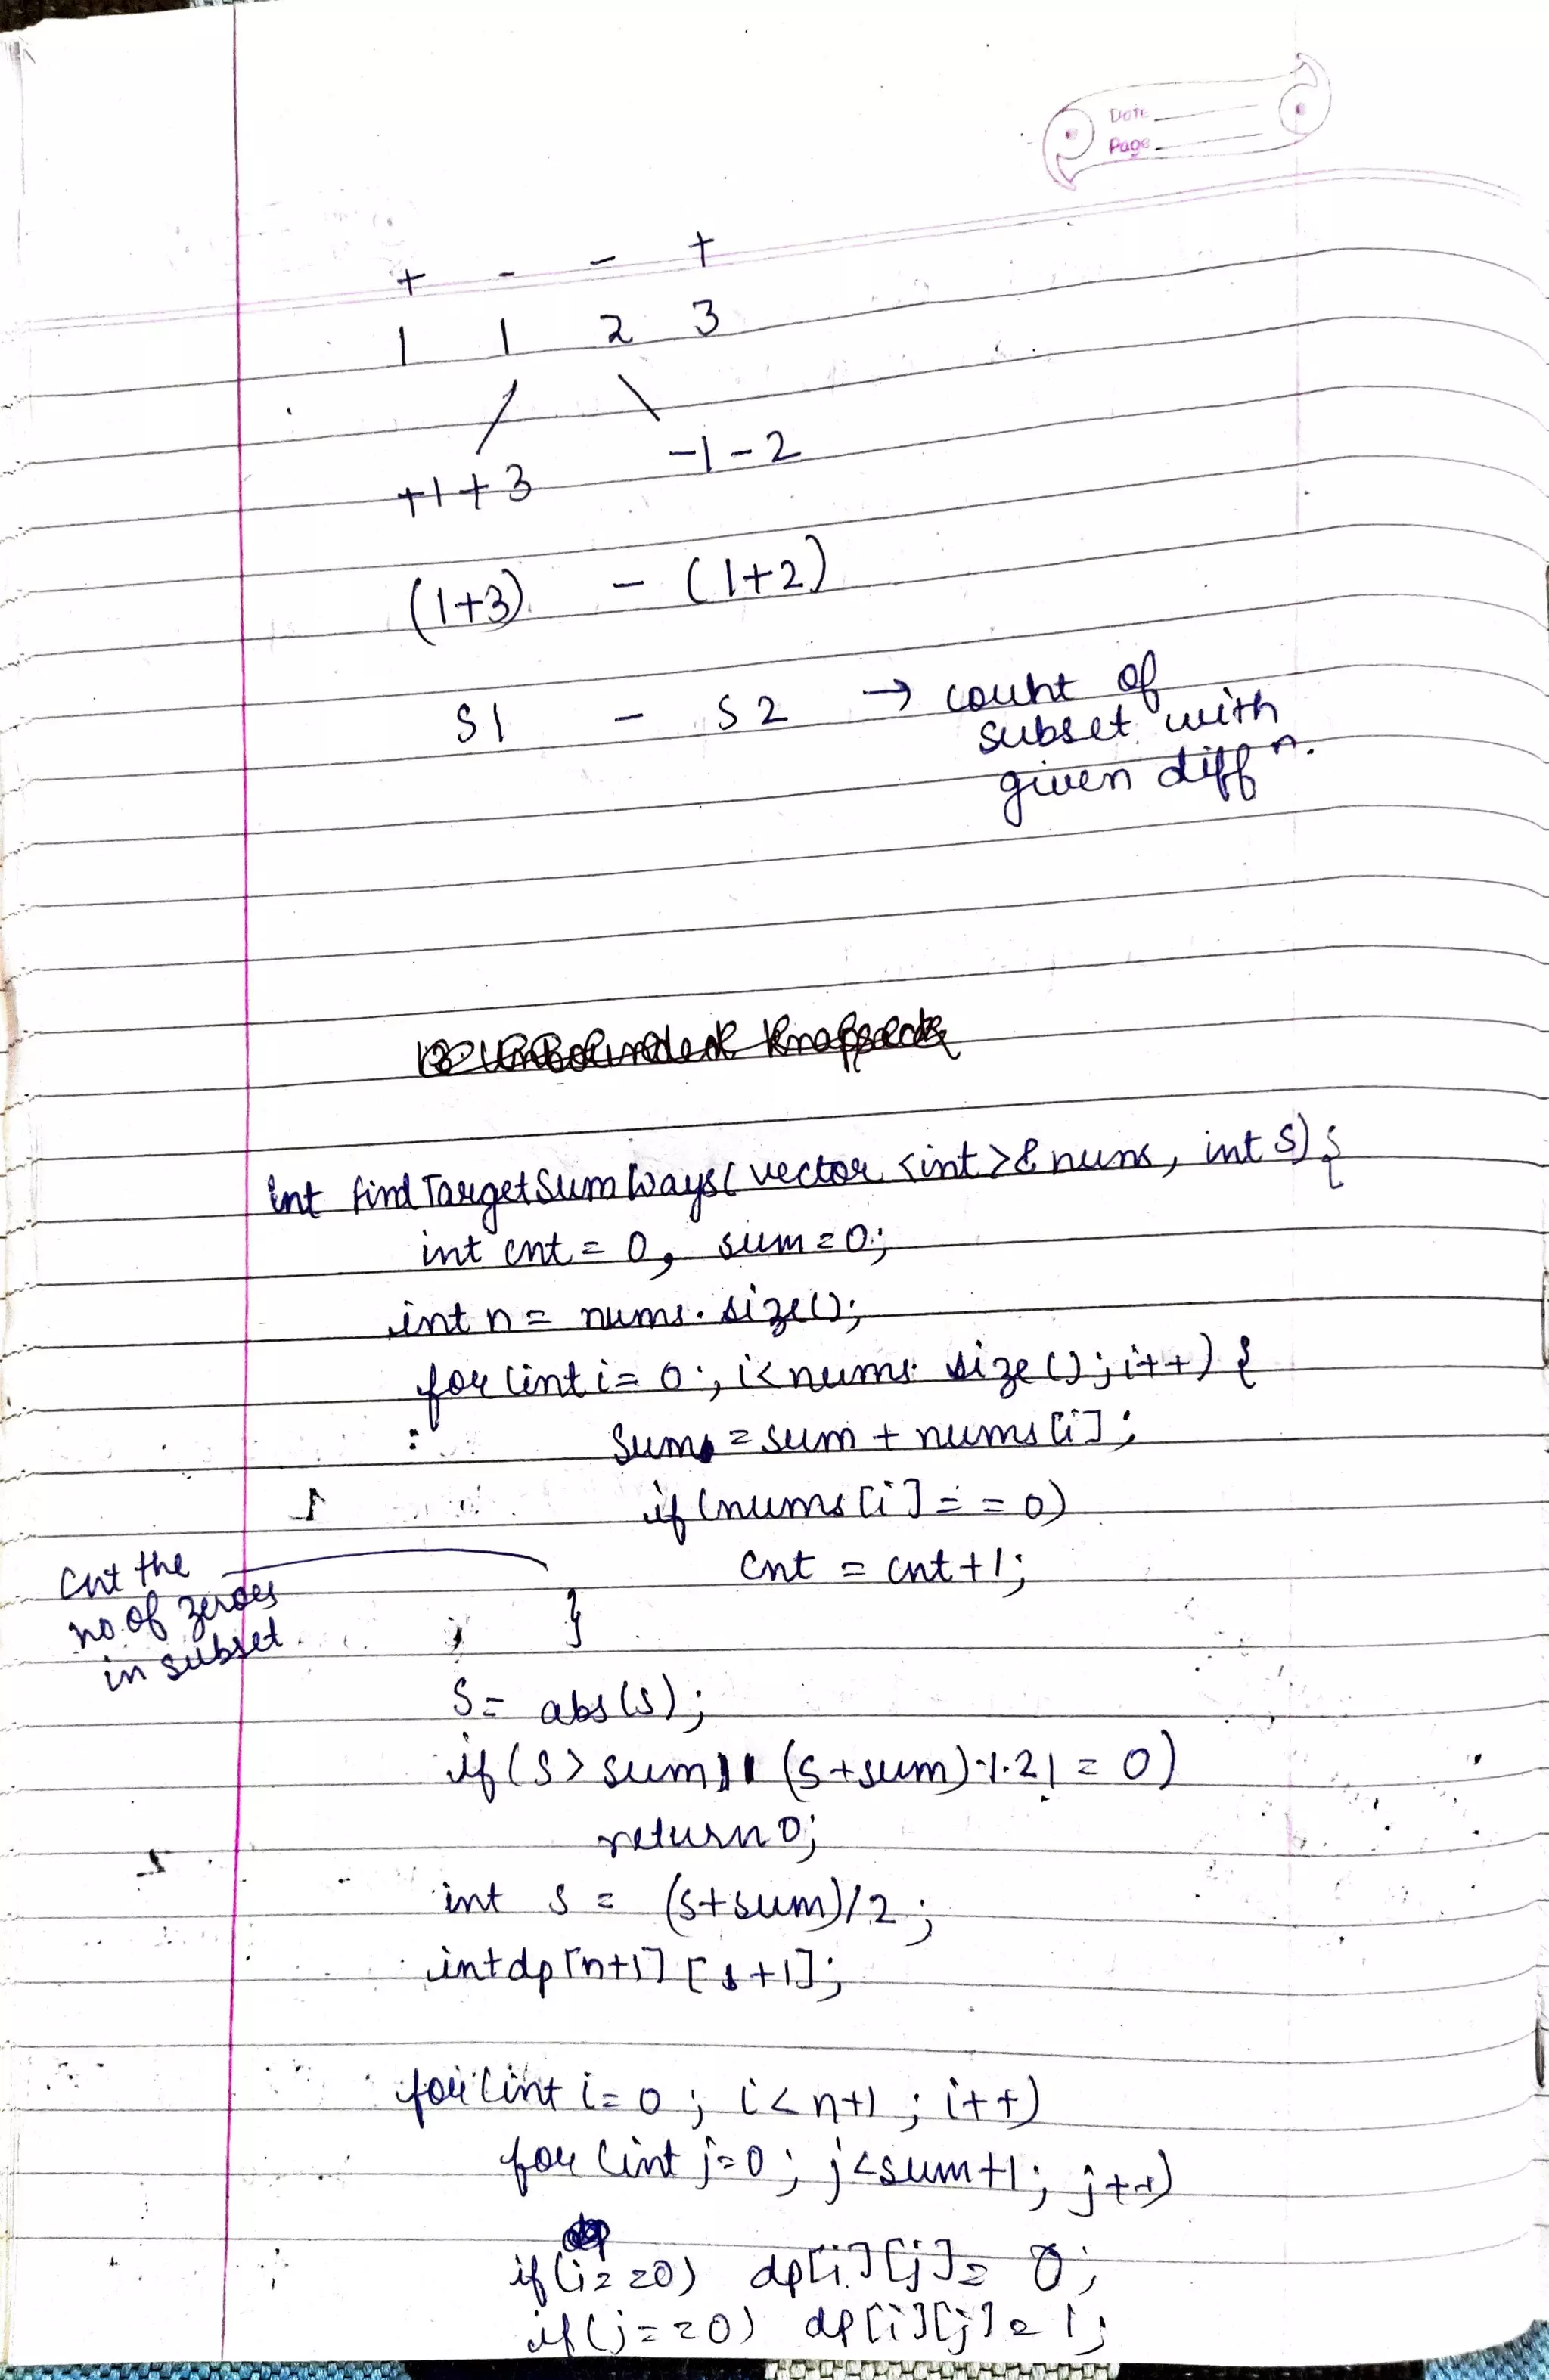 Date
Page
+ - - +
1 1 2 3
+1+3 -1-2
(1+3) - (1+2)
S1 - S2 → count of
subset with
given diffn.
Unbounded Knapsack
int findTargetSumWays(vector<int>& nums, int S){
int cnt = 0, sum=0;
int n = nums.size();
for(int i=0; i<nums.size(); i++) {
sum = sum + nums[i];
if(nums[i] == 0)
cnt = cnt+1;
cnt the
no. of zeroes
in subset
}
S = abs(S);
if(S>sum || (S+sum)%2!=0)
return 0;
int s = (S+sum)/2;
int dp[n+1][s+1];
for(int i=0; i<n+1; i++)
for(int j=0; j<sum+1; j++)
if(i==0) dp[i][j]= 0;
if(j==0) dp[i][j]=1;